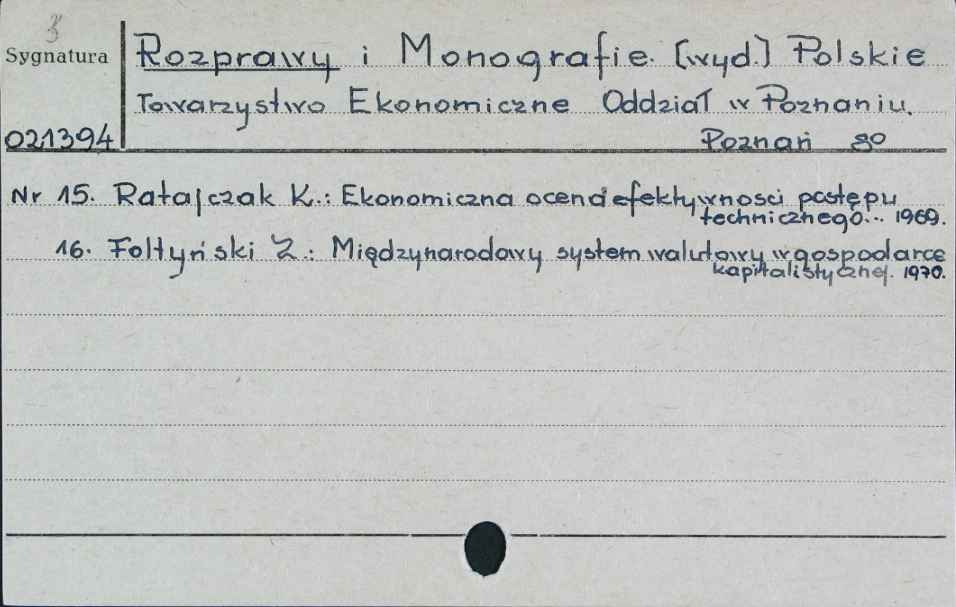 3
Sygnatura
Rozprawy i Monografie. [wyd.] Polskie
Towarzystwo Ekonomiczne Oddział w Poznaniu.
021394
Poznań 8º
Nr 15. Ratajczak K.: Ekonomiczna ocena efektywności postępu
technicznego... 1969.
16. Fołtyński Z.: Międzynarodowy system walutowy w gospodarce
kapitalistycznej. 1970.